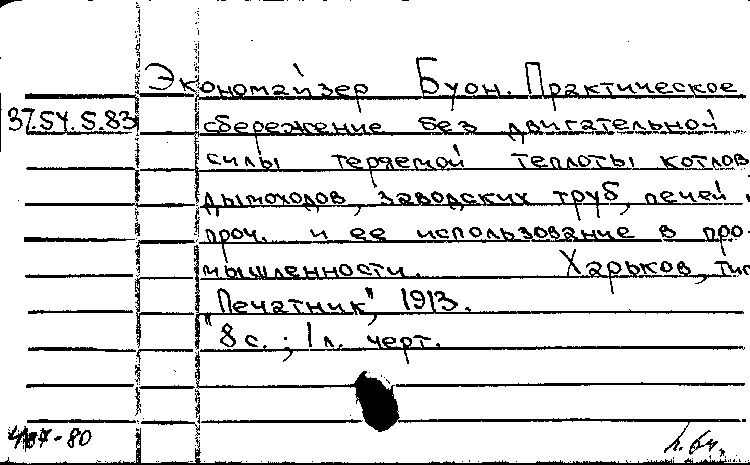 Экономайзер Буон. Практическое
37.54.5.83 сбережение без двигательной
силы теряемой теплоты котлов
дымоходов, заводских труб, печей
проч. и ее использование в про-
мышленности. Харьков, тип
"Печатник", 1913.
8 с. ; 1 л. черт.
487-80